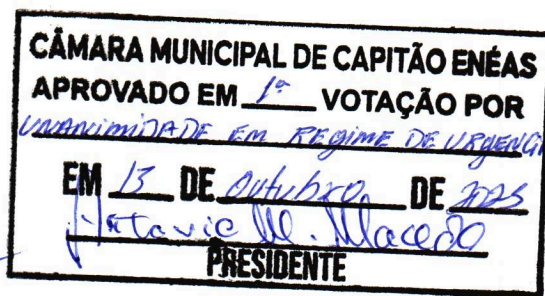 CÂMARA MUNICIPAL DE CAPITÃO ENÉAS
APROVADO EM 1ª VOTAÇÃO POR
UNANIMIDADE EM REGIME DE URGENCI
EM 13 DE Outubro DE 2025
M. Macedo
PRESIDENTE